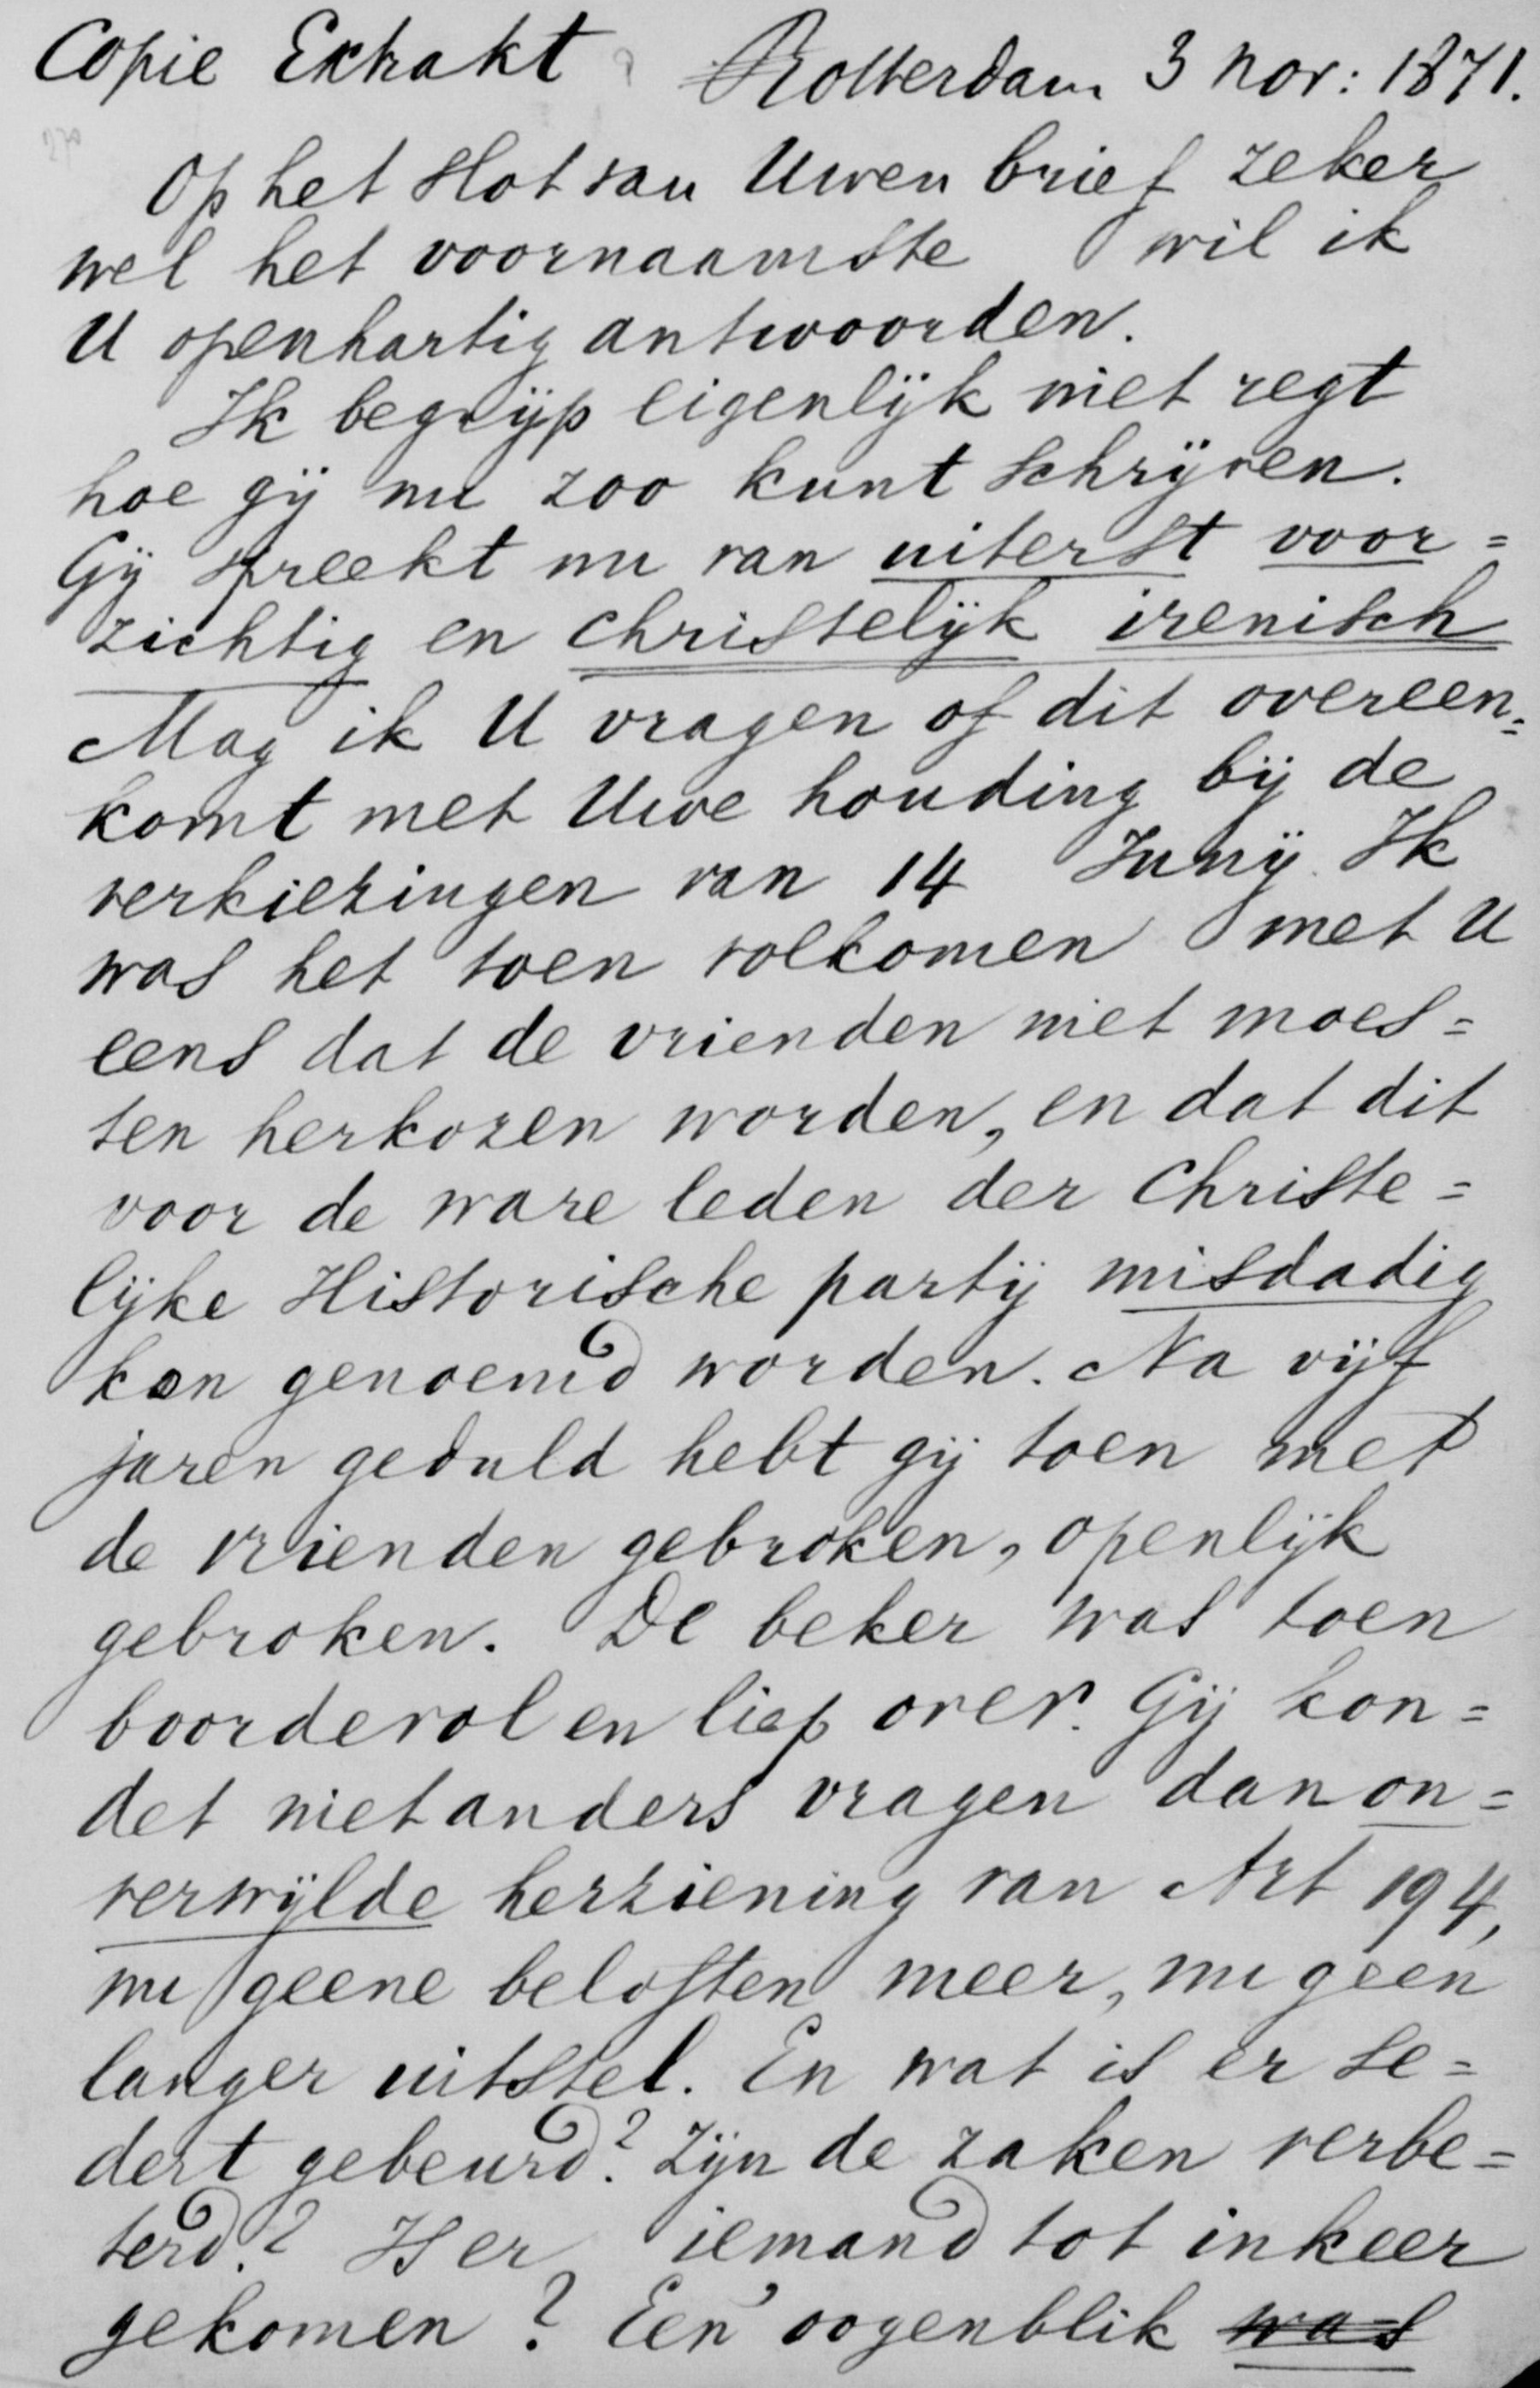 Copie Extrakt Rotterdam 3 Nov: 1871.
Op het slot van Uwen brief zeker
wel het voornaamste wil ik
U openhartig antwoorden.
Ik begrijp eigenlijk niet regt
hoe gij nu zoo kunt schrijven.
Gij spreekt nu van uiterst voor=
zichtig en christelijk irenisch
Mag ik U vragen of dit overeen=
komt met Uwe houding bij de
verkiezingen van 14 Junij. Ik
was het toen volkomen met U
eens dat de vrienden niet moes=
ten herkozen worden, en dat dit
voor de ware leden der Christe=
lijke Historische partij misdadig
kon genoemd worden. Na vijf
jaren geduld hebt gij toen met
de vrienden gebroken, openlijk
gebroken. De beker was toen
boordevol en liep over. Gij kon=
det niet anders vragen dan on=
verwijlde herziening van Art 194,
nu geene beloften meer, nu geen
langer uitstel. En wat is er se=
dert gebeurd? Zijn de zaken verbe=
terd? Is er iemand tot inkeer
gekomen? Een oogenblik was